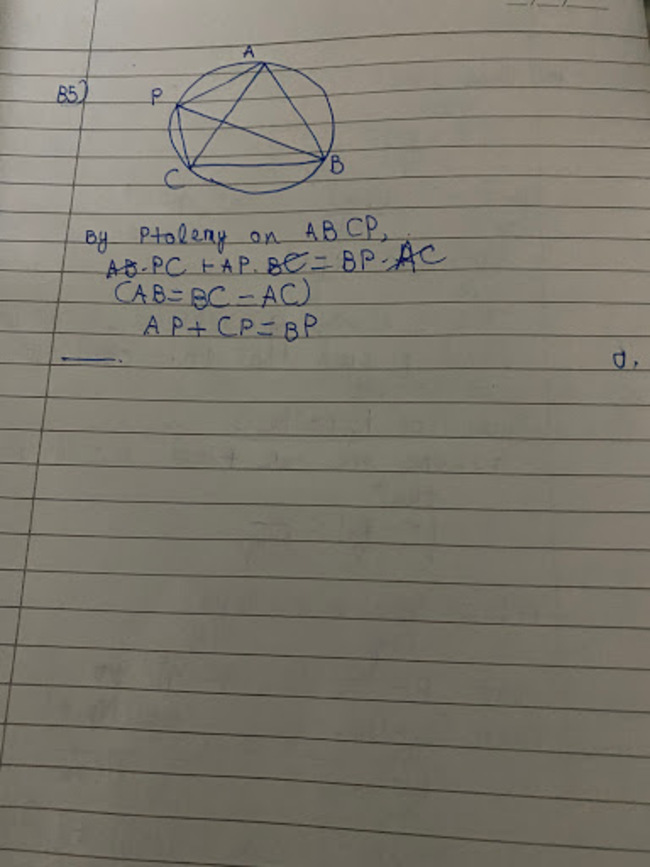 B5)
A
P
C
B
By Ptolemy on ABCP,
AB·PC + AP·BC = BP·AC
(AB = BC = AC)
AP + CP = BP